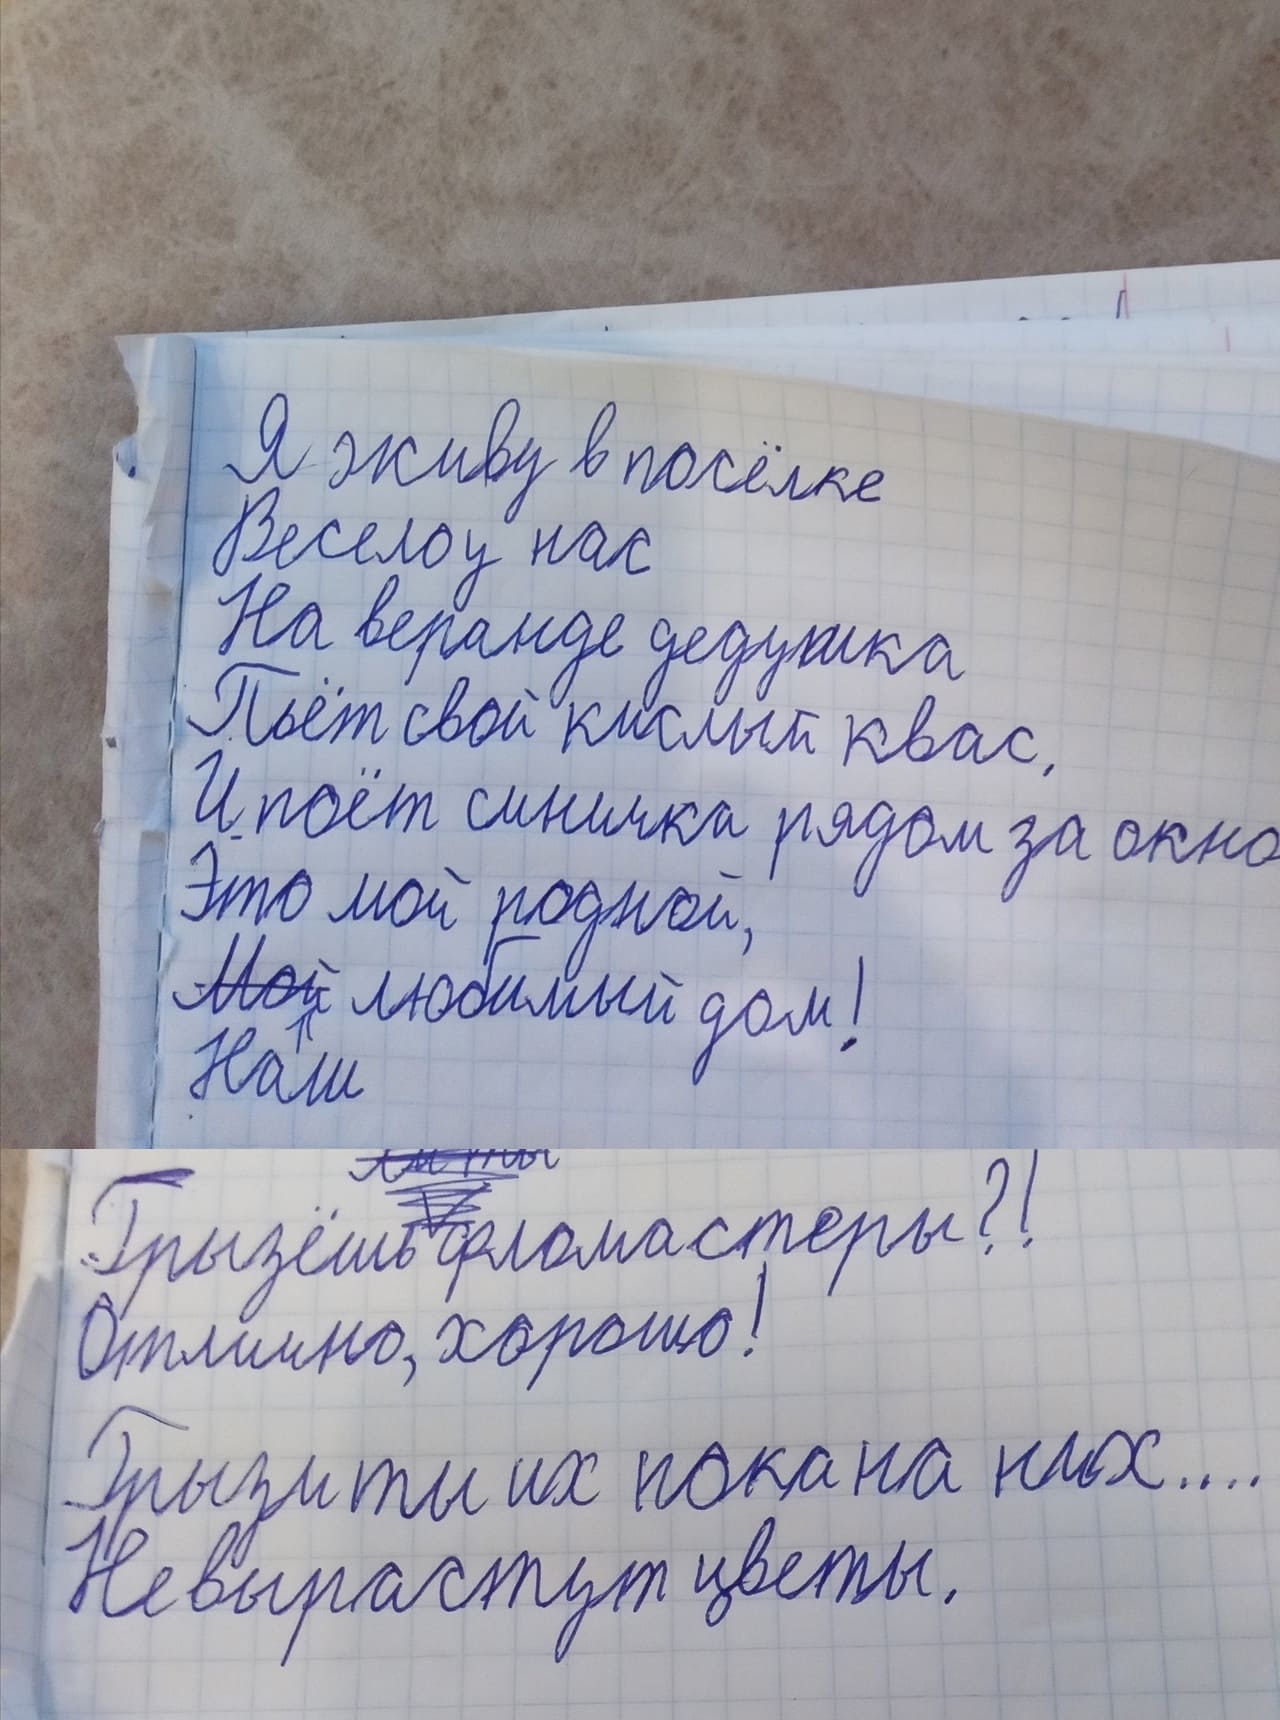 Я живу в посёлке
Весело у нас
На веранде дедушка
Пьёт свой кислый квас,
И поёт синичка рядом за окно
Это мой родной,
Мой любимый дом!
Наш
ли ты
Грызёшь фломастеры?!
Отлично, хорошо!
Грызи ты их пока на них....
Не вырастут цветы.